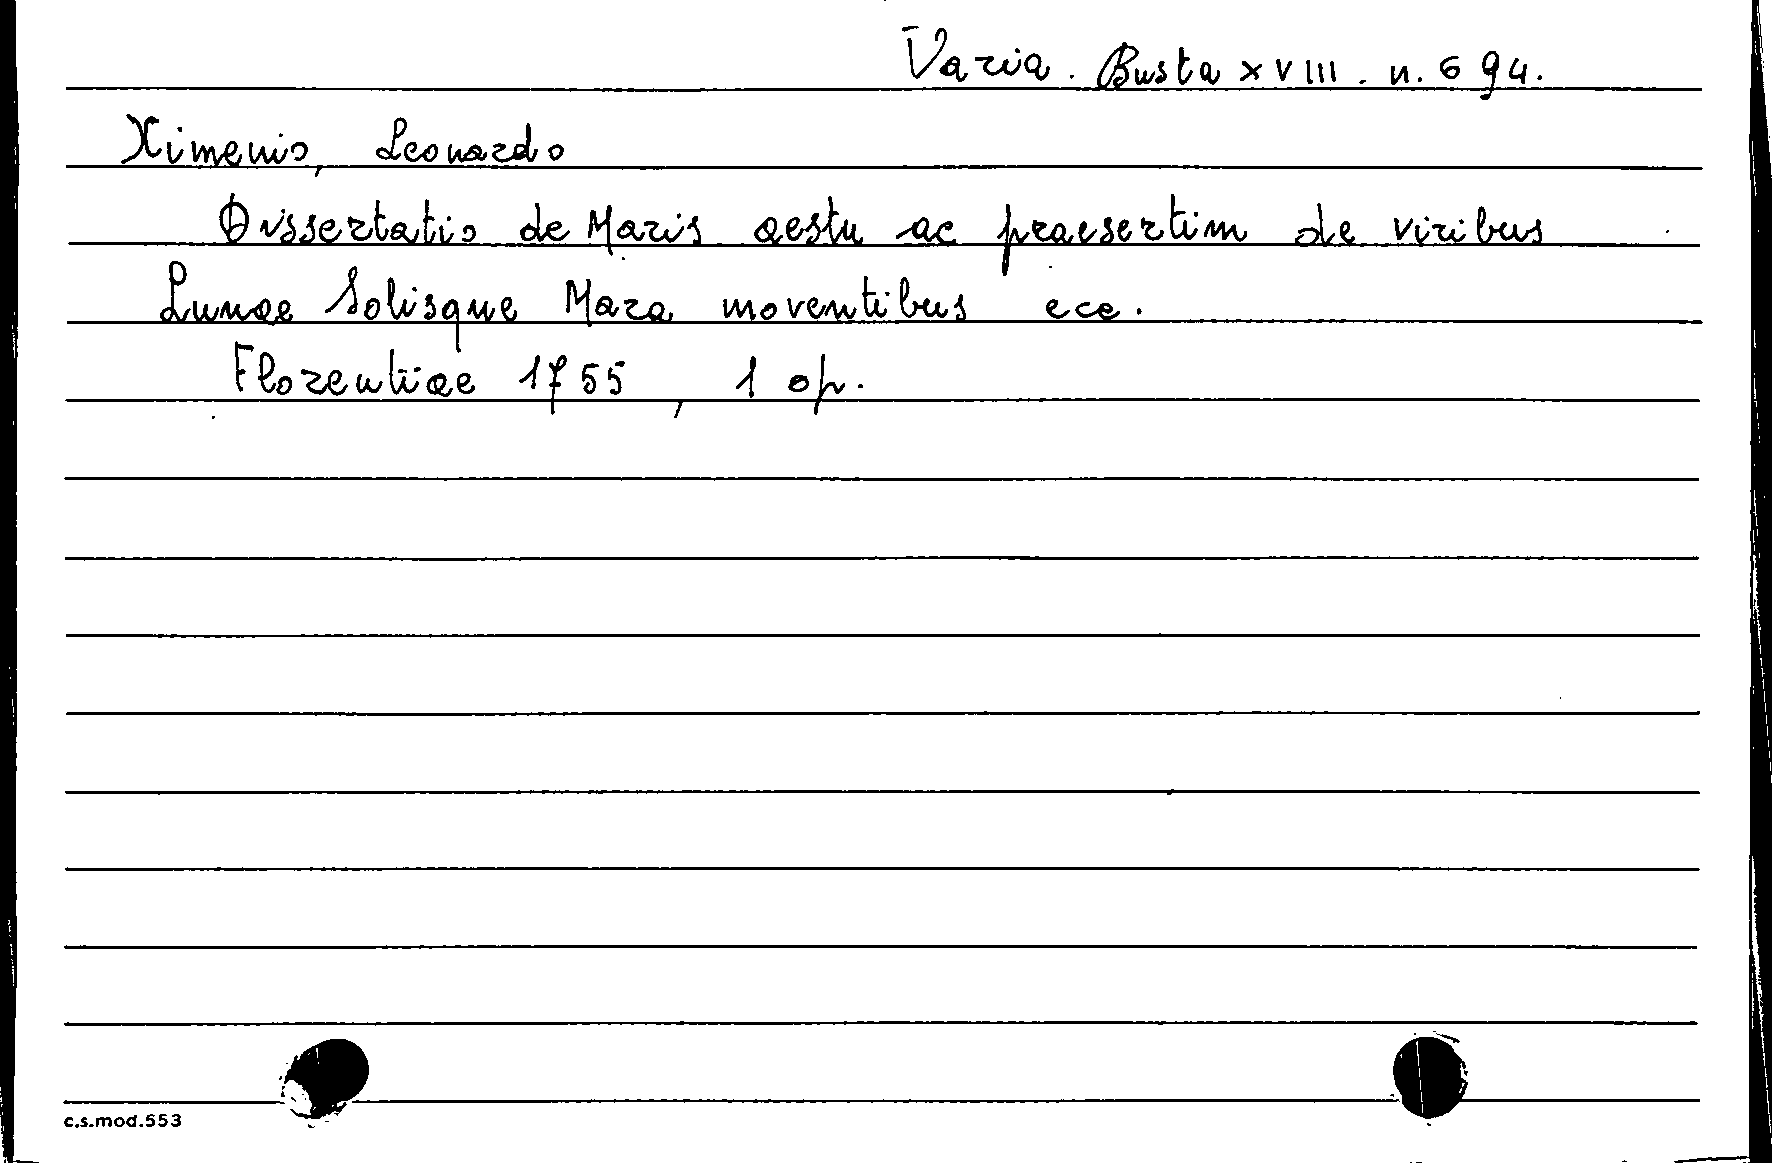 Varia. Busta XVIII. n. 694.
Ximenio, Leonardo
Dissertatio de Maris aestu ac praesertim de viribus
Lunae Solisque Mara moventibus ecc.
Florentiae 1755, 1 op.
c.s.mod.553